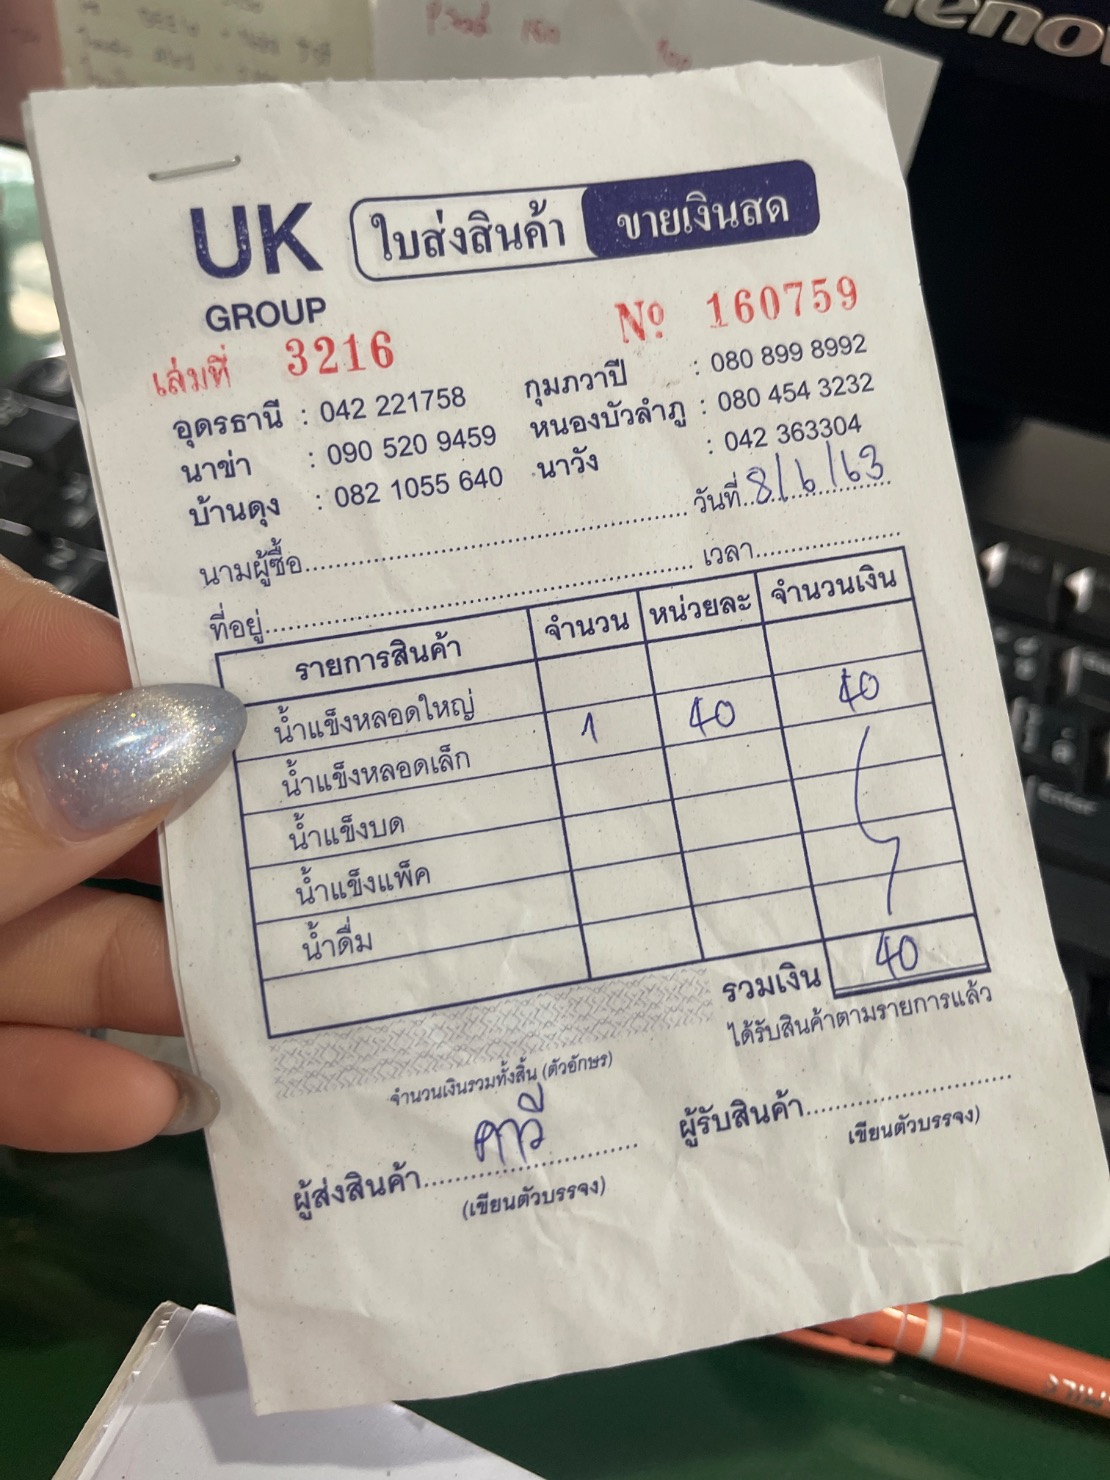 lenovo
UK
GROUP
ใบส่งสินค้า ขายเงินสด
เล่มที่ 3216 Nº 160759
อุดรธานี : 042 221758 กุมภวาปี : 080 899 8992
นาข่า : 090 520 9459 หนองบัวลำภู : 080 454 3232
บ้านดุง : 082 1055 640 นาวัง : 042 363304
นามผู้ซื้อ วันที่ 8/6/63
ที่อยู่ เวลา
รายการสินค้า จำนวน หน่วยละ จำนวนเงิน
น้ำแข็งหลอดใหญ่
น้ำแข็งหลอดเล็ก 1 40 40
น้ำแข็งบด
น้ำแข็งแพ็ค
น้ำดื่ม
รวมเงิน 40
จำนวนเงินรวมทั้งสิ้น (ตัวอักษร) ได้รับสินค้าตามรายการแล้ว
ผู้ส่งสินค้า ผู้รับสินค้า
(เขียนตัวบรรจง) (เขียนตัวบรรจง)
Enter